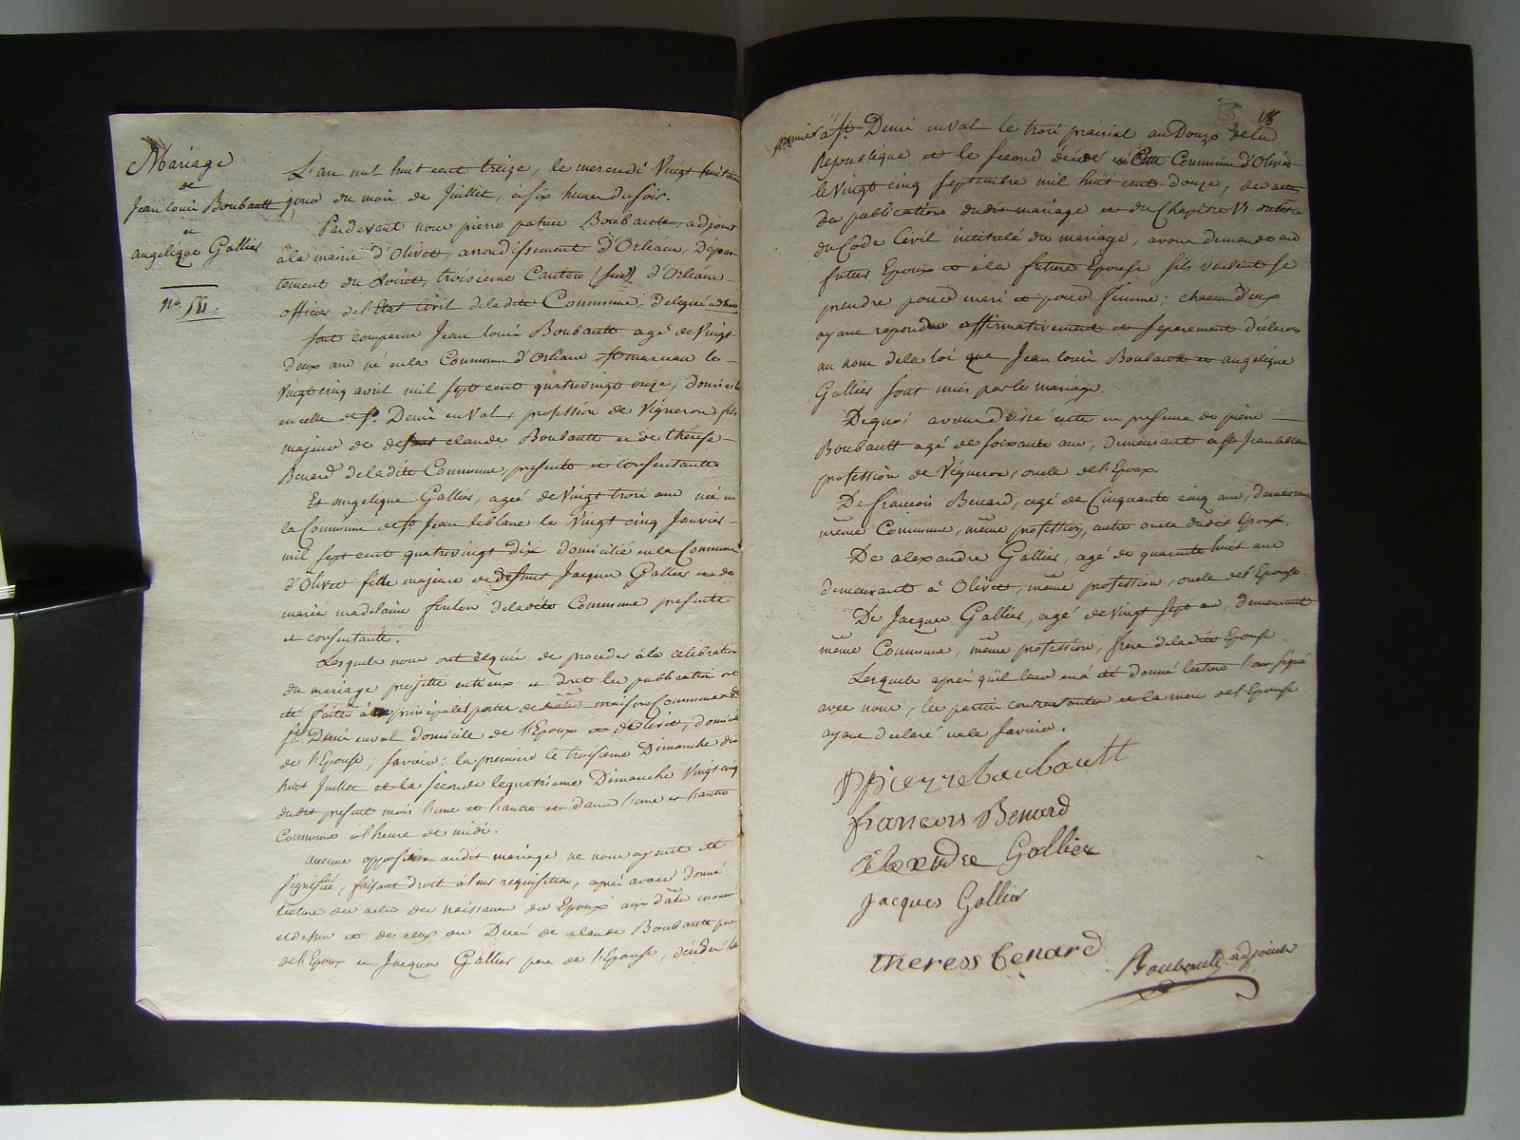 Mariage
de
Jean louis Boubault
et
angelique Gallier
No. III.
L'an mil huit cent treize, le mercredi Vingt huitieme
jour du mois de Juillet, à six heures du soir.
Pardevant nous pierre patrice Boubault, adjoint
à la mairie d'Olivet, arrondissement d'Orléans, Dépar-
tement du Loiret, troisieme Canton (sud) d'Orléans
officier de l'Etat Civil de ladite Commune, delegué
Sont comparus Jean louis Boubault agé de Vingt
deux ans né en la Commune d'Orléans St marceau le
Vingt cinq avril mil sept cent quatrevingt onze, domicilié
en celle de St Denis en Val, profession de Vigneron, fils
majeur de defunt claude Boubault et de thérese
Benard de ladite Commune, presente et consentante
Et angelique Gallier, agée de Vingt trois ans née en
la Commune de St Jean leblanc le Vingt cinq Janvier
mil sept cent quatrevingt dix domiciliée en la Commune
d'Olivet fille majeure de defunt Jacques Gallier et de
marie madelaine de ladite Commune presente
et consentante.
Lesquels nous ont requis de proceder à la celebration
du mariage projetté entreux et dont les publications ont
été faites à principales portes de maison Commune de
St Denis en val domicile de l'Epoux et d'Olivet, domicile
de l'Epouse, savoir: la premiere le troisieme Dimanche dix
huit Juillet et la seconde le quatrieme Dimanche Vingt cinq
dudit present mois l'une et l'autre et dans l'une et l'autre
Commune à l'heure de midi.
aucune opposition audit mariage ne nous ayant été
signifiée, faisant droit à leur requisition, après avoir donné
lecture des actes de naissance des Epoux aux dates
et de ceux du Decès de claude Boubault père
de l'Epoux et Jacques Gallier pere de l'Epouse, décédés le
18
premier à St Denis en Val le trois prairial an Douze de la
Republique et le second décédé en cette Commune d'Olivet
le Vingt cinq septembre mil huit cent douze, des actes
de publications dudit mariage et du Chapitre VI du titre
du Code Civil intitulé du mariage, avons demandé au
futur Epoux et à la future Epouse s'ils veulent se
prendre pour mari et pour femme; chacun d'eux
ayant repondu affirmativement et separement declarons
au nom de la loi que Jean louis Boubault et angelique
Gallier sont unis par le mariage.
De quoi avons dressé acte en presence de pierre
Boubault agé de soixante ans, demeurant à St Jean leblanc
profession de Vigneron, oncle de l'Epoux
De francois Benard, agé de Cinquante cinq ans, demeurant
même Commune, même profession, autre oncle dudit Epoux.
De alexandre Gallier, agé de quarante huit ans
demeurant à Olivet, même profession, oncle de l'Epouse
De Jacques Gallier, agé de vingt sept ans, demeurant
même Commune, même profession, frere de ladite Epouse
Lesquels après qu'il leur en a été donné lecture l'ont signé
avec nous, les parties contractantes et la mere de l'Epouse
ayant declaré ne le savoir.
pierre boubault
francois Benard
alexandre Gallier
jacques Gallier
theress benard
Boubault adjoint